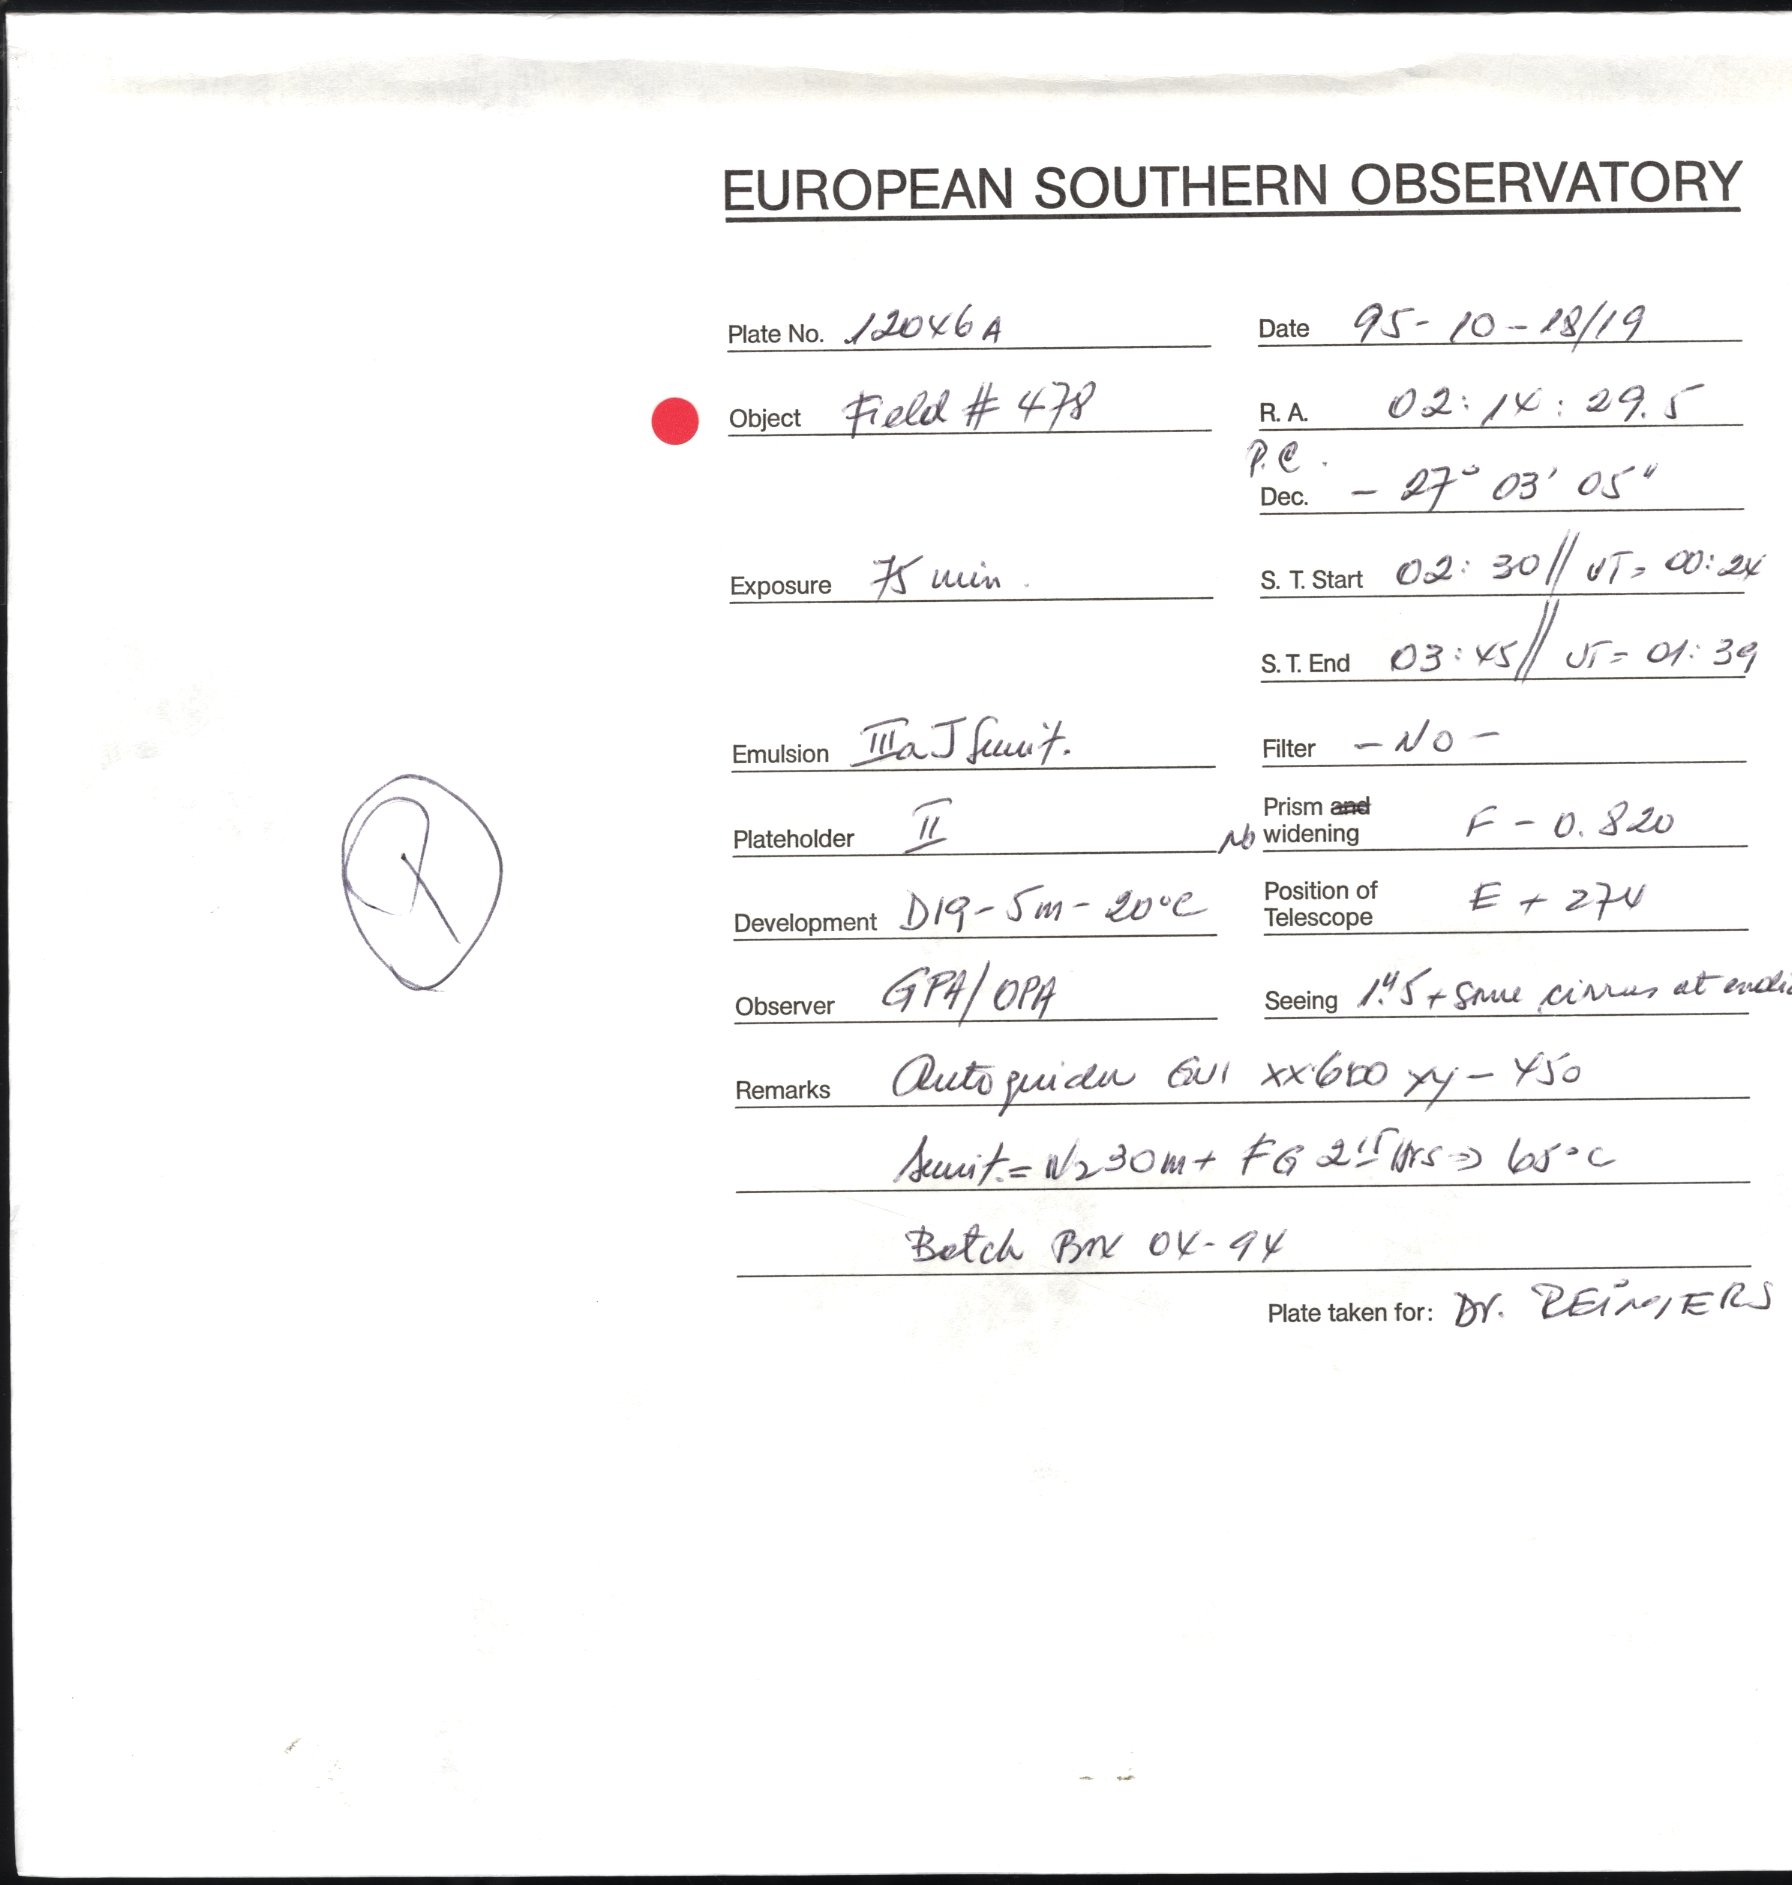 EUROPEAN SOUTHERN OBSERVATORY
Plate No. 12046A
Date 95-10-18/19
Object Field # 478
R. A. 02:14:29.5
P.C.
Dec. - 27° 03' 05"
Exposure 75 min.
S. T. Start 02:30// UT= 00:24
S. T. End 03:45// UT= 01:39
Emulsion IIIaJ Sensit.
Filter - No -
Plateholder II
Prism and No widening F - 0.820
Development D19-5m-20°C
Position of Telescope E + 274
Observer GPA/OPA
Seeing 1."5 + some cirrus at
Remarks Autoguider GU1 xx600 yy-450
Sensit.= N2 30m + FG 2 Hrs => 65°C
Batch Box 04-94
Plate taken for: Dr. REIMERS